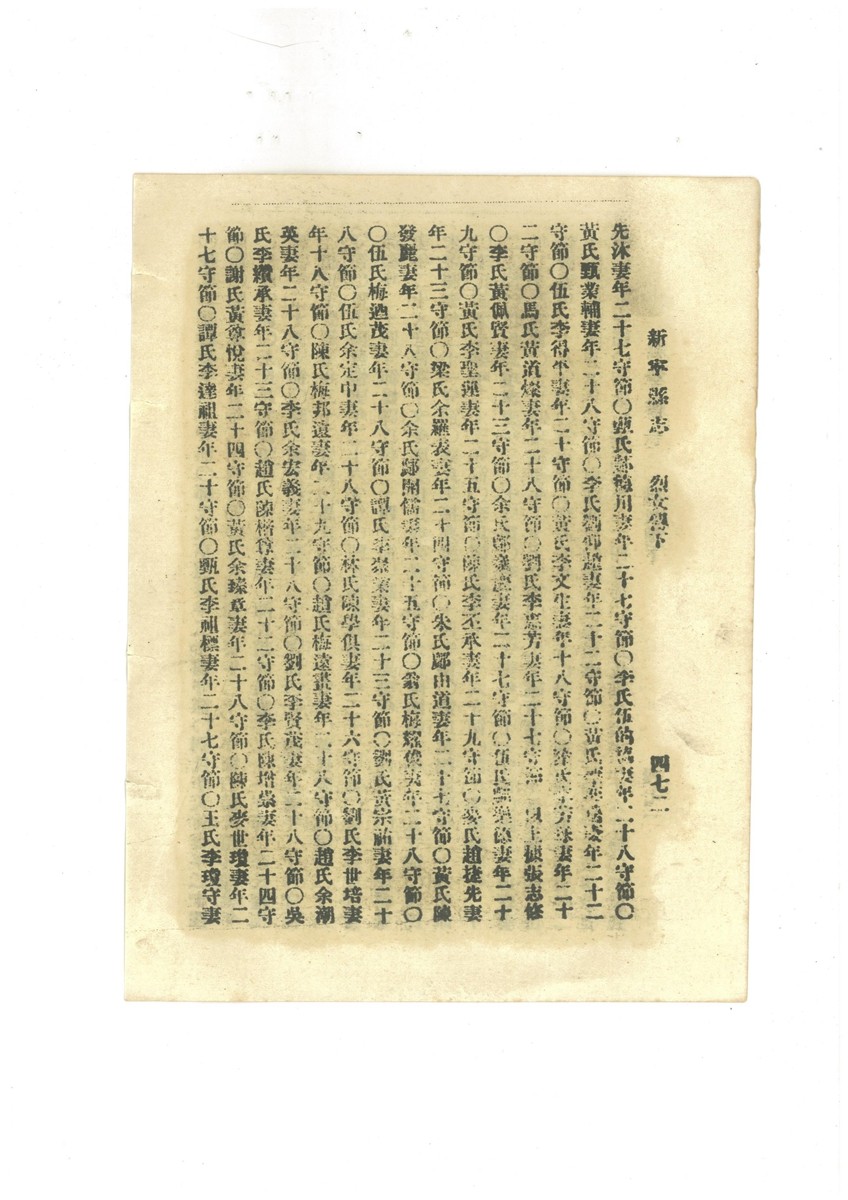 新寧縣志 烈女傳下 四七二
先沐妻年二十七守節〇甄氏 川妻年二十七守節〇李氏伍的 妻年二十八守節〇
黃氏甄業輔妻年二十八守節〇李氏劉仰超妻年二十二守節〇黃氏 妻年二十二
守節〇伍氏李得平妻年二十守節〇黃氏李文生妻年十八守節〇 芳 妻年二十
二守節〇馬氏黃道燦妻年二十八守節〇劉氏李惠芳妻年二十七守節 以上據張志修
〇李氏黃佩賢妻年二十三守節〇余氏鄺 妻年二十七守節〇伍氏 德妻年二十
九守節〇黃氏李聖運妻年二十五守節〇陳氏李丕承妻年二十九守節〇麥氏趙捷先妻
年二十三守節〇梁氏余羅表妻年二十四守節〇朱氏鄺由道妻年二十七守節〇黃氏陳
發 妻年二十八守節〇余氏鄺開儒妻年二十五守節〇翁氏梅耀俊妻年二十八守節〇
〇伍氏梅迺茂妻年二十八守節〇譚氏李 妻年二十三守節〇劉氏黃宗祐妻年二十
八守節〇伍氏余定中妻年二十八守節〇林氏陳學俱妻年二十六守節〇劉氏李世培妻
年十八守節〇陳氏梅邦遠妻年二十九守節〇趙氏梅遠 妻年二十八守節〇趙氏余潮
英妻年二十八守節〇李氏余宏義妻年二十八守節〇劉氏李賢茂妻年二十八守節〇吳
氏李纘承妻年二十三守節〇趙氏陳楷尊妻年二十二守節〇李氏陳增 妻年二十四守
節〇謝氏黃尊悅妻年二十四守節〇黃氏余臻章妻年二十八守節〇陳氏麥世瓊妻年二
十七守節〇譚氏李達祖妻年二十守節〇甄氏李祖標妻年二十七守節〇王氏李瓊守妻